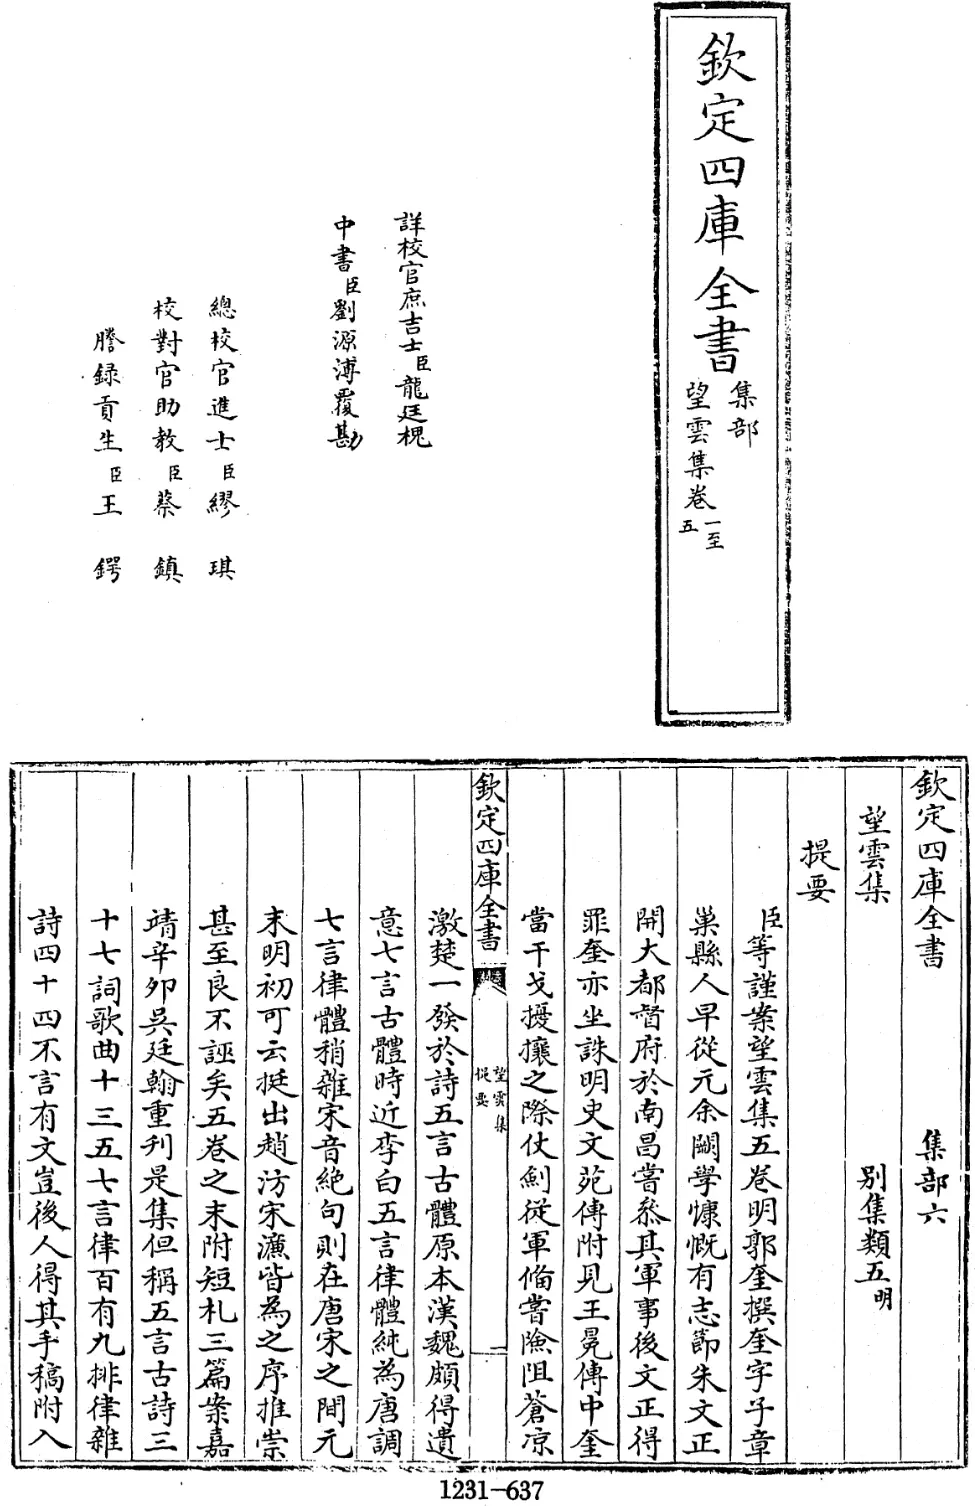 欽定四庫全書
集部
望雲集卷一至五
詳校官庶吉士臣龍廷槐
中書臣劉源溥覆勘
總校官進士臣繆琪
校對官助教臣蔡鎮
謄録貢生臣王鍔
欽定四庫全書 集部六
望雲集 别集類五明
提要
臣等謹案望雲集五卷明郭奎撰奎字子章
巢縣人早從元余闕學慷慨有志節朱文正
開大都督府於南昌嘗叅其軍事後文正得
罪奎亦坐誅明史文苑傳附見王冕傳中奎
當干戈擾攘之際仗劍從軍備嘗險阻蒼凉
欽定四庫全書 望雲集提要 一
激楚一發於詩五言古體原本漢魏頗得遺
意七言古體時近李白五言律體純為唐調
七言律體稍雜宋音絶句則在唐宋之間元
末明初可云挺出趙汸宋濂皆為之序推崇
甚至良不誣矣五卷之末附短札三篇案嘉
靖辛卯吳廷翰重刋是集但稱五言古詩三
十七詞歌曲十三五七言律百有九排律雜
詩四十四不言有文豈後人得其手稿附入
1231-637